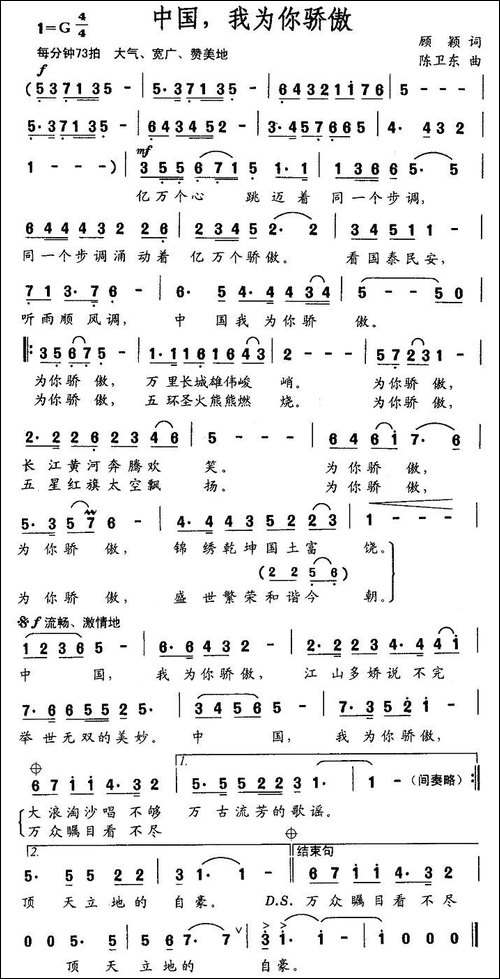 中国，我为你骄傲
1=G 4/4
顾 颖 词
每分钟73拍 大气、宽广、赞美地
陈卫东 曲
f
(537135- | 5·37135- | 64321176 | 5--- |
5·37135- | 643452- | 3·457665 | 4·432 |
mf
1---) | 355671 5 1·1 | 13665·5 |
亿万个心 跳迈着 同一个步调，
64443264 | 224542·0 | 34511- |
同一个步调涌动着 亿万个骄傲。 看国泰民安，
713·76 | 6·54·4434 | 5--50 |
听雨顺风调， 中国我为你骄傲。
‖:35675- | 1·111611643 | 2--- | 57231- |
为你骄傲， 万里长城雄伟峻峭。 为你骄傲，
为你骄傲， 五环圣火熊熊燃烧。 为你骄傲，
2·2262346 | 5--- | 64617·6 |
长江黄河奔腾欢笑。 为你骄傲，
五星红旗太空飘扬。 为你骄傲，
5·3576- | 4·44352223 | 1--- |
为你骄傲， 锦绣乾坤国土富饶。
(2256)
为你骄傲， 盛世繁荣和谐今朝。
f 流畅、激情地
12365- | 6·6432- | 2·2234·441 |
中国， 我为你骄傲， 江山多娇说不完
7·665525· | 34565- | 7·35211- |
举世无双的美妙。 中国， 我为你骄傲，
1.
67114·32 | 5·552231· | 1-- (间奏略) :‖
大浪淘沙唱不够 万古流芳的歌谣。
万众瞩目看不尽
2.
结束句
5·55222 | 31·1- | 67114·32 |
顶天立地的自豪。 D.S. 万众瞩目看不尽
005·5 | 5667·7 | 31·1- | 1000 ‖
顶天立地的自豪。